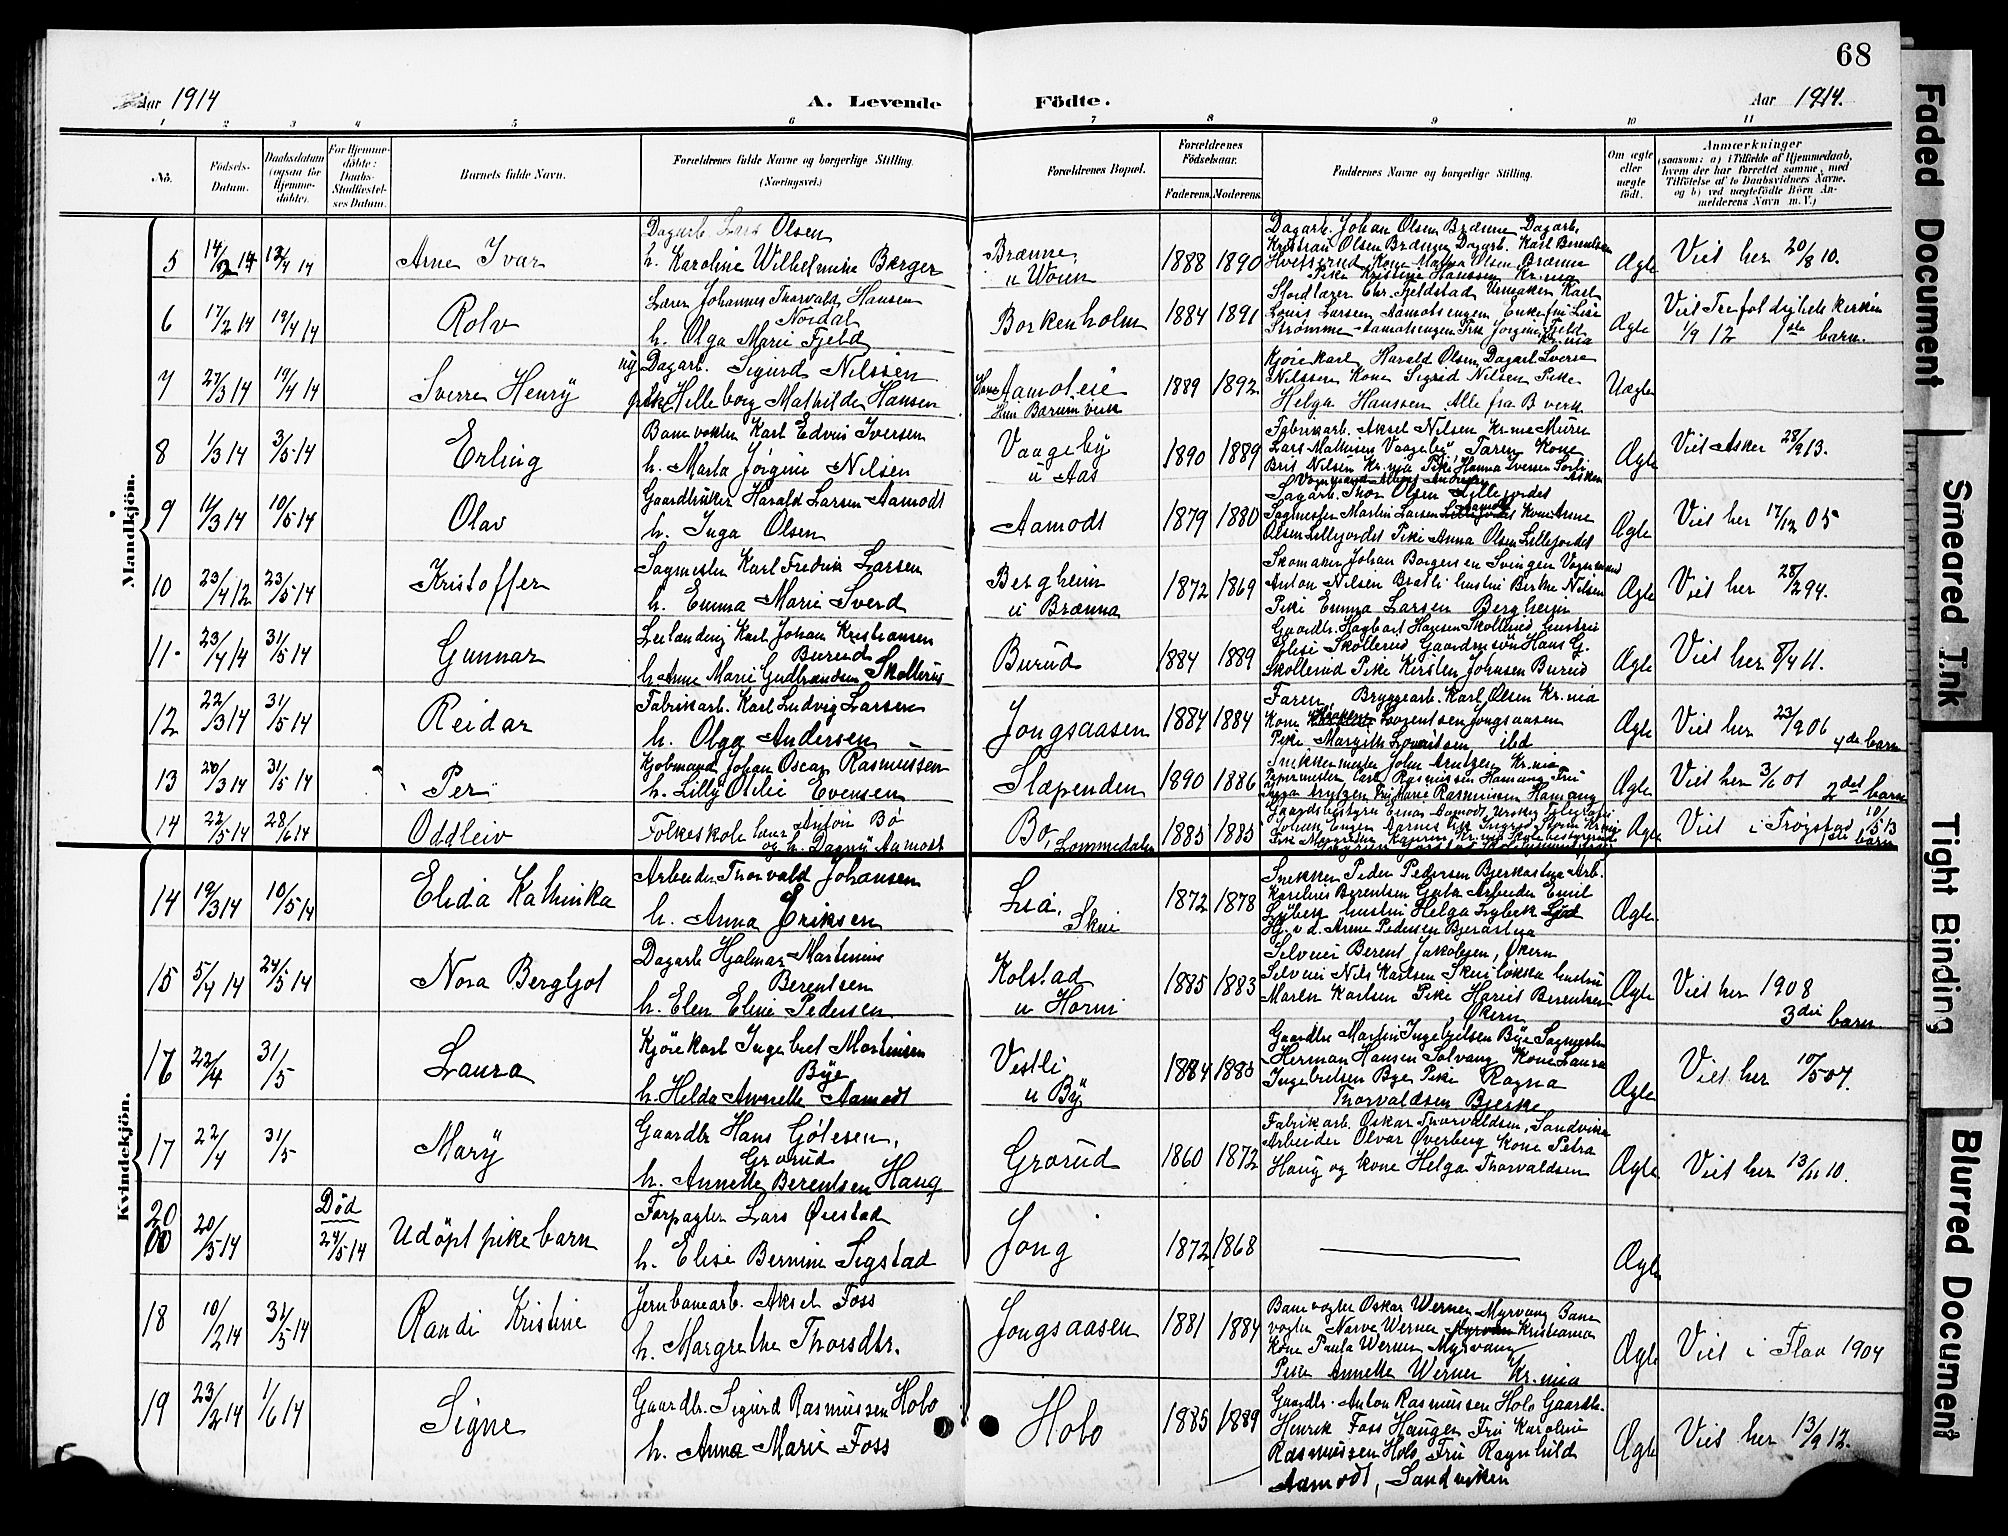 68
Aar 1914
A. Levende
Födte.
Aar 1914.
1 2 3 4 5 6 7 8 9 10 11
No.
Födsels-Datum.
Daabsdatum (ogsaa for Hjemme-döbte).
For Hjemme-döbte: Daabs-Stadfæstel-ses Datum.
Barnets fulde Navn.
Forældrenes fulde Navne og borgerlige Stilling.
(Næringsvei.)
Forældrenes Bopæl.
Forældrenes Födselsaar.
Faderens. Moderens.
Faddernes Navne og borgerlige Stilling.
Om ægte eller uægte født.
Anmærkninger
(saasom: a) i Tilfælde af Hjemmedaab, hvem der har forrettet samme, med Tilföielse af to Daabsvidners Navne, og b) ved uægtefödte Börn An-melderens Navn m. V.)
Mandkjön.
5 14/2 14 13/4 14 Arne Ivar
Dagarb. Lars Olsen
h. Karoline Wilhelmine Berger
Brænne
u Woien
1888 1890
Dagarb. Johan Olsen Brænne Dagarb.
Kristian Olsen Brænne Dagarb. Karl Berentsen
Pike Kristine Hanssen Kr.nia
Ægte
Viet her 20/8 10.
6 17/2 14 19/4 14 Rolv
Lærer Johannes Thorvald Hansen
Nordal
h. Olga Marie Fjeld
Borkenholm
1884 1891
Stordlærer Chr. Fjeldstad Urmaker Karl
Louis Larsen, Aamotsengen Enkefru Lise
Strømme Aamotsengen Frk Jorgine Fjeld
Kr.nia
Ægte
Viet Trefoldighetskirken
1/9 12 1ste barn.
7 27/3 14 19/4 14 Sverre Henrÿ
ug Dagarb. Sigurd Nilssen
pike Helleborg Mathilde Hansen
Aamoteie
Hun Bærum verk
1889 1892
Kjørekarl Harald Olsen Dagarb Sverre
Nilssen Kone Sigrid Nilsen Pike
Helga Hanssen. Alle fra B verk
Uægte
8 1/3 14 3/5 14 Erling
Banevokter Karl Edvin Iversen
h. Marta Jörgine Nilsen
Vaagebÿ
u Aas
1890 1889
Fabrikarb. Aksel Nilsen Kr.nia Murer
Lars Mathisen Vaagebÿ, Faren Kone
Brit Nilsen Kr.nia Pike Hanna Iversen
Asker
Ægte
Viet Asker 28/9 13.
9 11/3 14 10/5 14 Olav
Gaardbruker Harald Larsen Aamodt
h. Inga Olsen
Aamodt
1879 1880
Sagarb. Thor Olsen Lillejordet
Sagmester Martin Larsen Aamodt Kone Anne
Olsen Lillejordet Pike Anna Olsen Lillejordet
Ægte
Viet her 17/12 05
10 23/4 12 23/5 14 Kristoffer
Sagmester Karl Fredrik Larsen
h. Emma Marie Sverd
Bergheim
u Brænna
1872 1869
Skomaker Johan Borgersen Svingen Vognmand
Anton Nilsen Bratli hustru Berthe Nilsen
Pike Emma Larsen Bergheim
Ægte
Viet her 28/2 94.
11. 23/4 14 31/5 14 Gunnar
Leilænding Karl Johan Kristiansen
Burud
h. Anne Marie Gudbrandsen Skollerud
Burud
1884 1889
Gaardbr. Hagbart Hansen Skollerud hustru
Elise Skollerud Gaardmsön Hans G.
Skollerud Pike Kirsten Johnsen Burud
Ægte
Viet her 8/4 11.
12 22/3 14 31/5 14 Reidar
Fabrikarb. Karl Ludvig Larsen
h. Olga Andersen
Jongsaasen
1884 1884
Faren Bryggearb. Karl Olsen Kr.nia
Kone Lorentsen Jongsaasen
Pike Margith Lorentsen ibd
Ægte
Viet her 23/9 06
4de barn
13 20/3 14 31/5 14 Per
Kjöbmand Johan Oscar Rasmussen
h. Lilly Otilie Evensen
Slæpenden
1890 1886
Snekkermester John Arntzen Kr.nia
Papirmester Carl Rasmussen Hamang Fru
Inga Arntzen Fru Marie Rasmussen Hamang
Ægte
Viet her 3/6 01
2det barn
14 22/5 14 28/6 14 Oddleiv
Folkeskole lærer Anton Bö
og h. Dagnÿ Aamodt
Bö, Lommedalen
1885 1885
Ægte
Viet i Trøgstad 10/5 13
1ste barn
Kvindekjön.
14 19/3 14 10/5 14 Elida Kathinka
Arbeider Thorvald Johansen
h. Anna Eriksen
Lia,
Skui
1872 1878
Snekker Peder Pedersen Bjerkastua Arb.
Karelius Berentsen Gata Arbeider Emil
Lyberg hustru Helga Lyberg
Hj. v d. Anne Pedersen Bjerastua
Ægte
15 5/4 14 24/5 14 Nora Bergljot
Dagarb Hjalmar Martinius
Berentsen
h. Elen Eline Pedersen
Kolstad
u Horni
1885 1883
Selveier Berent Jakobsen, Økern
Selveier Nils Karlsen Skuiløkka hustru
Maren Karlsen Pike Hariet Berentsen
Økern
Ægte
Viet her 1908
3die barn
16 22/4 31/5 Laura
Kjörekarl Ingebret Martinsen
Bÿe
h. Helda Annette Aamodt
Vestli
u Bÿ
1884 1883
Gaardbr Martin Ingebretsen Bÿe Sagmester
Herman Hansen Solvang Kone Laura
Ingebretsen Bye Pike Ragna
Thorvaldsen Bjerke
Ægte
Viet her 10/5 07.
17 22/4 31/5 Marÿ
Gaardbr Hans Götesen,
Grorud
h. Annette Berentsen Haug
Grorud
1860 1872
Fabrikarb. Oskar Thorvaldsen, Sandviken
Arbeider Olvar Øverberg Kone Petra
Haug og kone Helga Thorvaldsen
Ægte
Viet her 13/11 10.
20
00 20/5 14 Död
24/5 14 Udöpt pikebarn
Forpagter Lars Øiestad
h. Elise Bernine Sigstad
Jong
1872 1868
Ægte
18 10/2 14 31/5 14 Randi Kristine
Jernbanearb. Aksel Foss
h. Margrethe Thorsdtr.
Jongsaasen
1881 1884
Banevogter Oskar Werner Myrvang Bane
vogter Narve Werner Kristiania
Kone Paula Werner Myrvang
Pike Annette Werner Kr.nia
Ægte
Viet i Flaa 1904
19 23/2 14 1/6 14 Signe
Gaardbr. Sigurd Rasmussen Holo
h. Anna Marie Foss
Holo
1885 1889
Gaardbr. Anton Rasmussen Holo Gaardbr.
Henrik Foss Haugen Fru Karoline
Rasmussen Holo Fru Ragnhild
Aamodt, Sandviken
Ægte
Viet her 13/9 12.
Faded Document
Smeared Ink
Tight Binding
Blurred Document